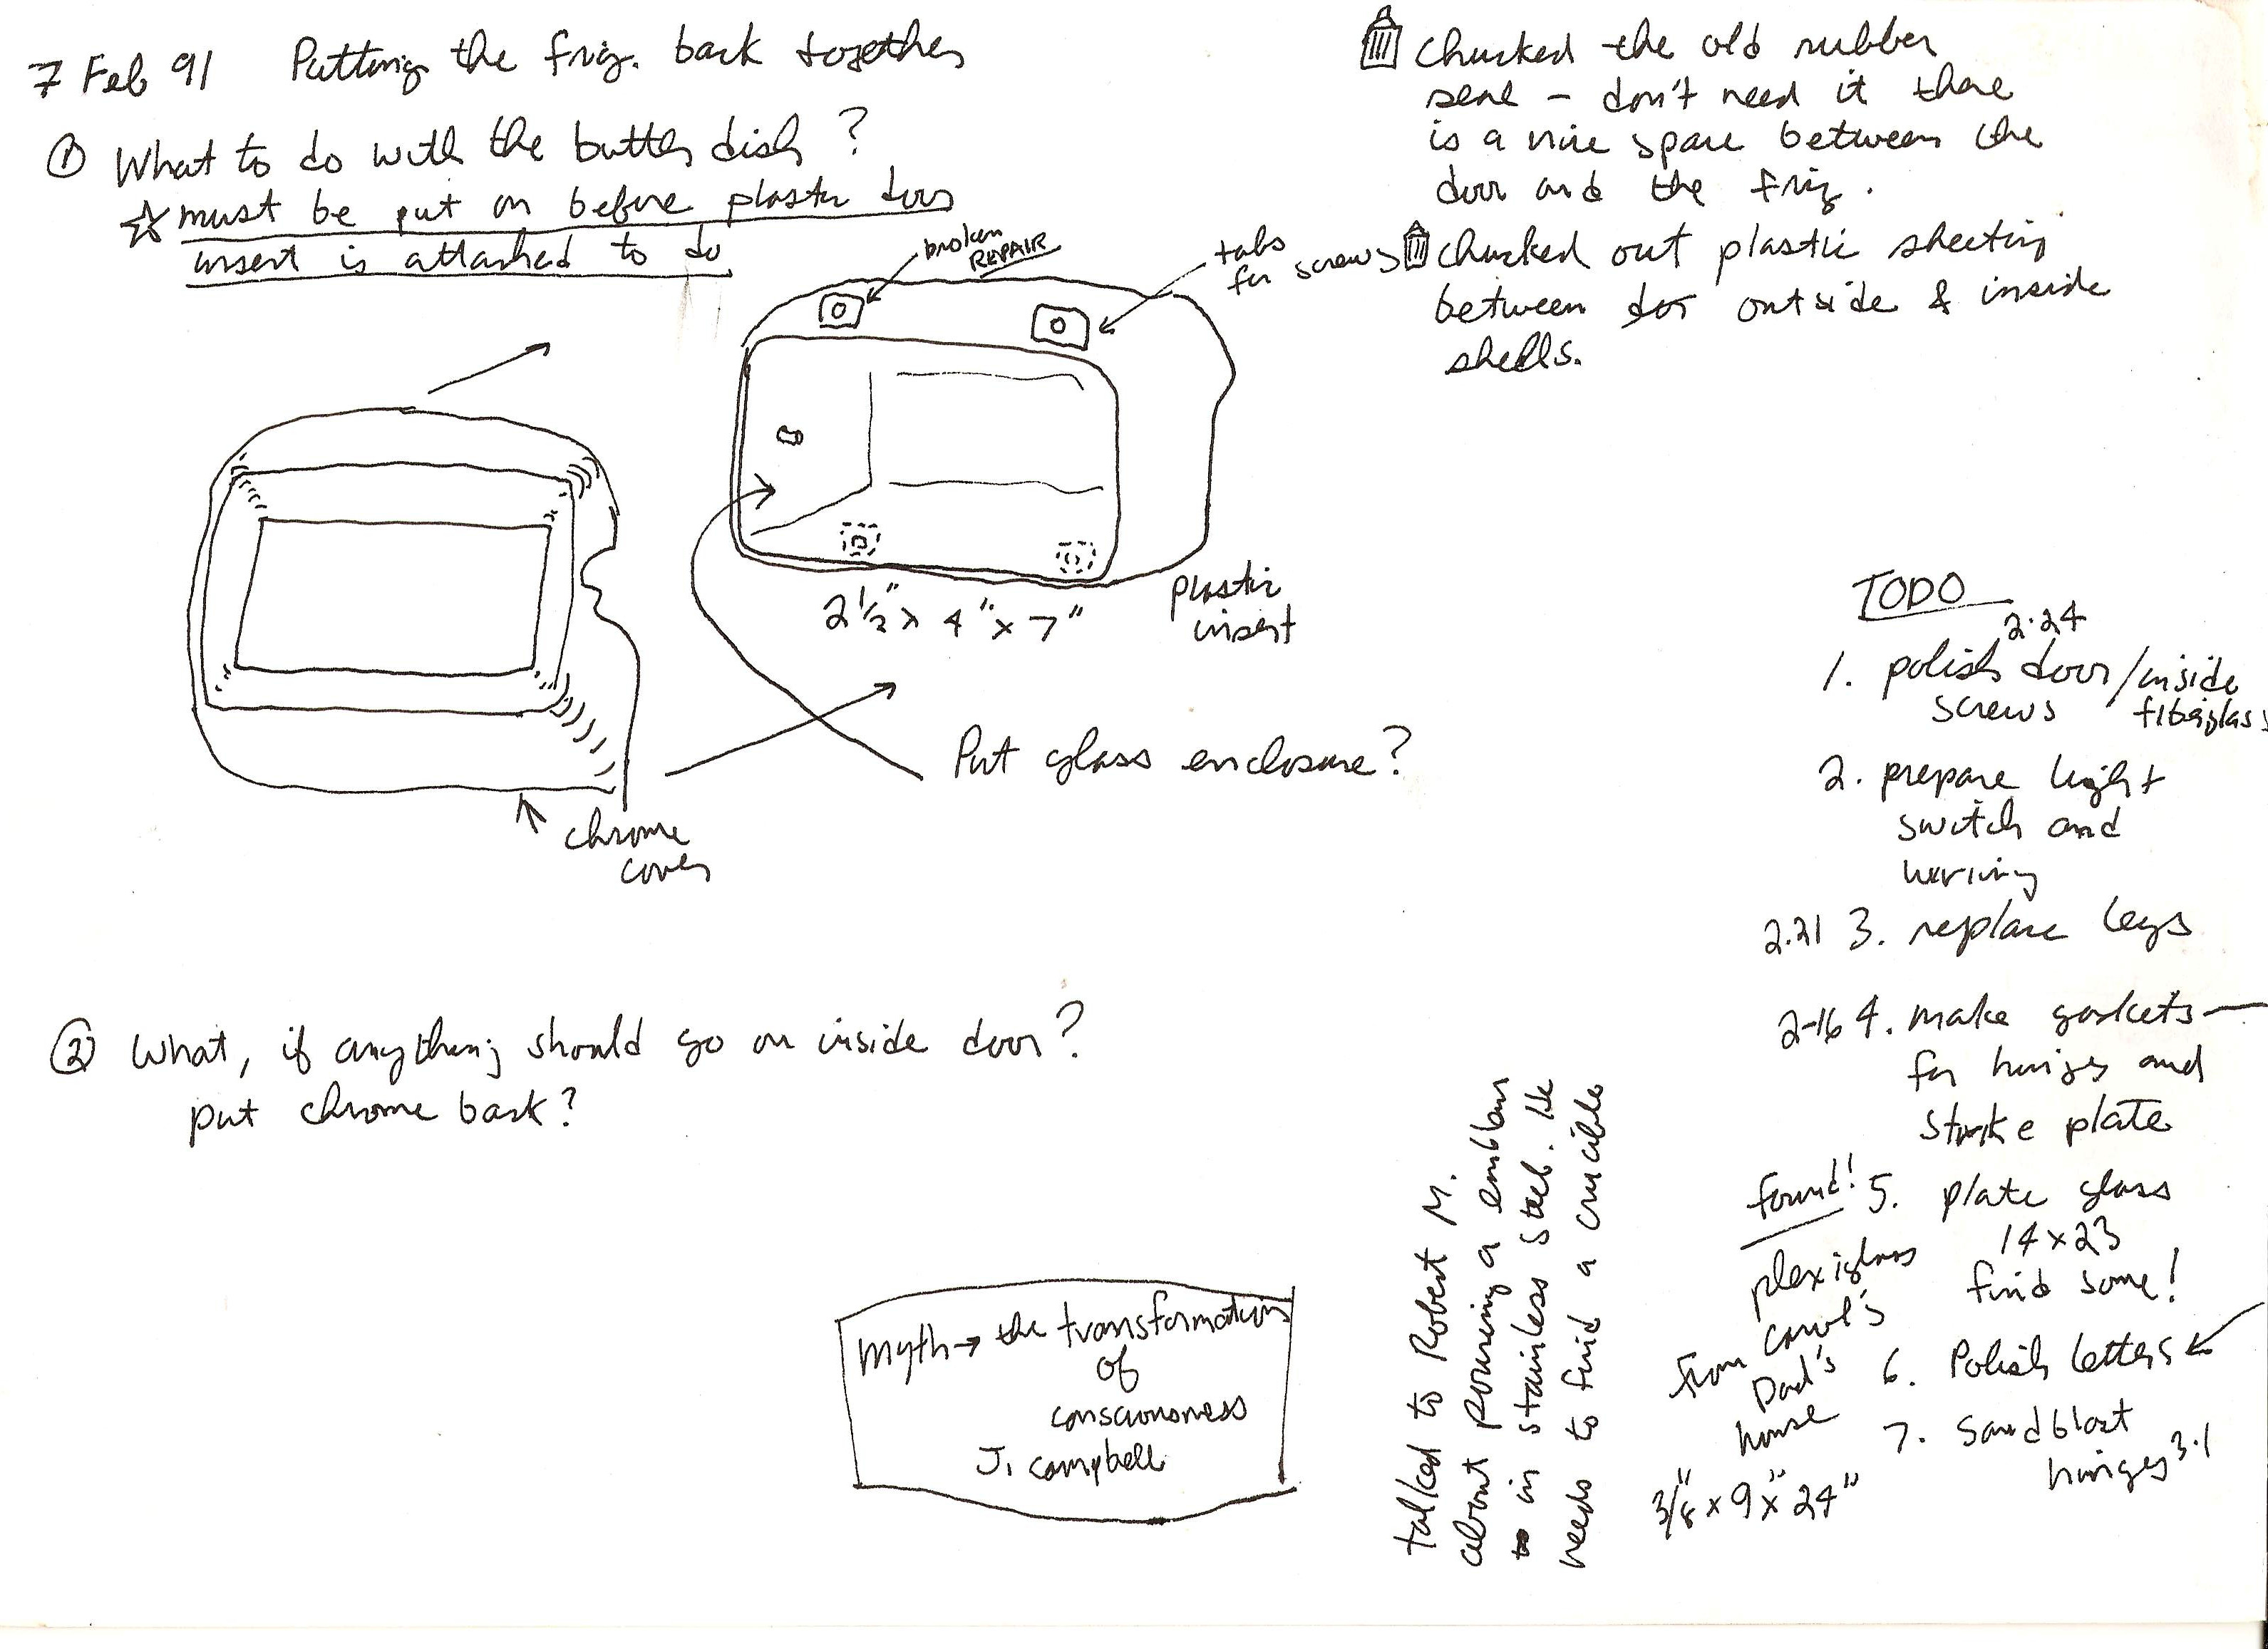 7 Feb 91 Putting the frig. back together
① What to do with the butter dish?
☆ must be put on before plastic door
insert is attached to do
broken
REPAIR
tabs
for screws
2 1/2" x 4" x 7"
plastic
insert
Put glass enclosure?
chrome
cover
② What, if anything should go on inside door?
put chrome back?
Myth → the transformation
of
consciousness
J. Campbell
Chucked the old rubber
seal - don't need it there
is a nice space between the
door and the frig.
Chucked out plastic sheeting
between door outside & inside
shells.
talked to Robert M.
about pouring a emblem
in stainless steel. He
needs to find a crucible
TODO
2.24
1. polish door/inside
screws fiberglass
2. prepare light
switch and
wiring
2.21 3. replace legs
2-16 4. make gaskets
for hinges and
strike plate
found! 5. plate glass
14 x 23
find some!
plexiglass
from Carol's
Dad's
house
3/8" x 9" x 24"
6. Polish letters
7. Sandblast
hinges 3.1